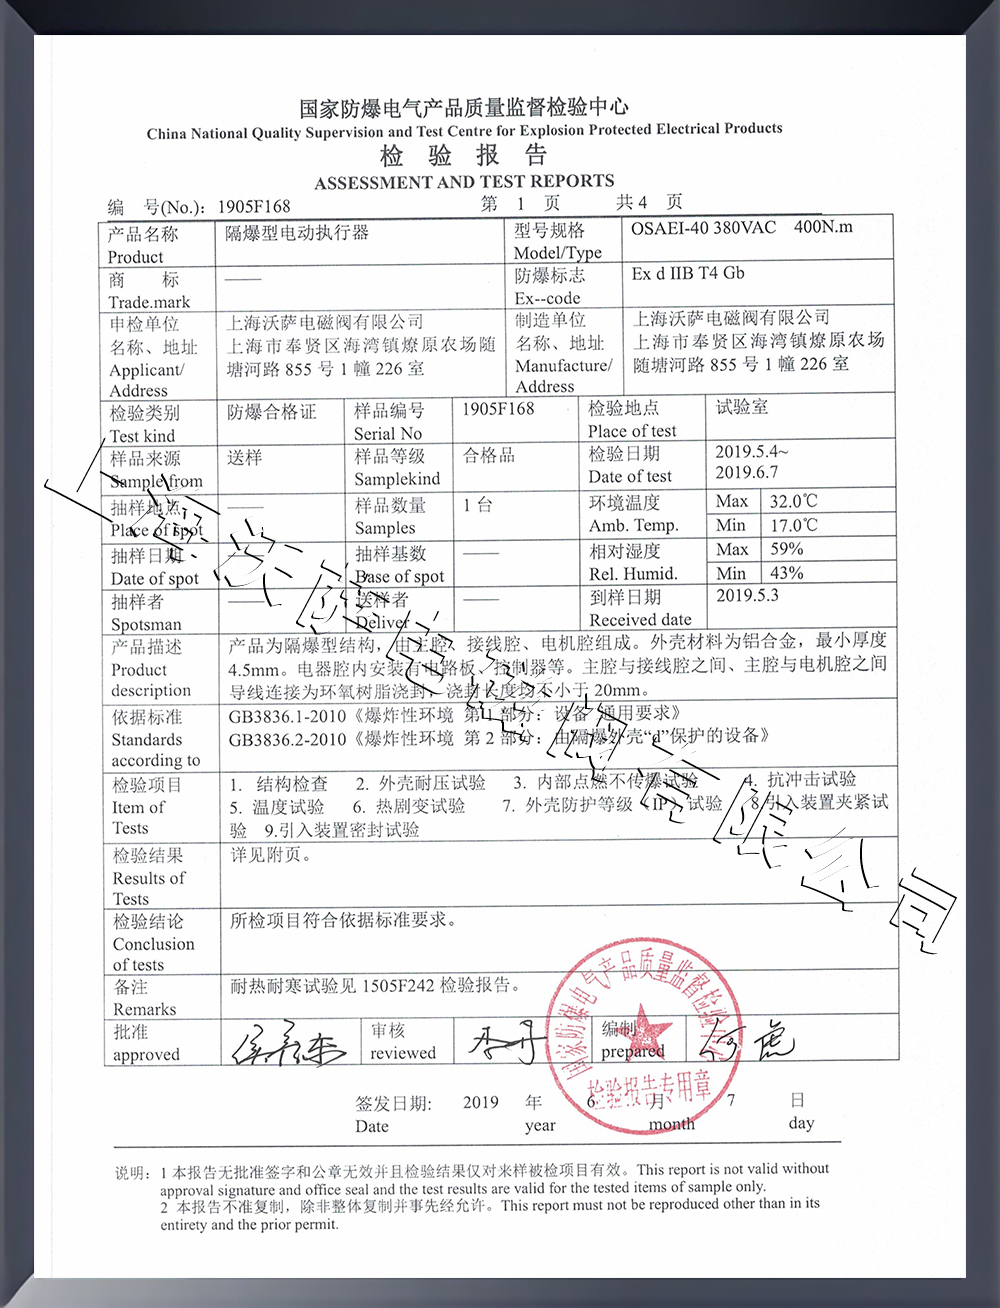 国家防爆电气产品质量监督检验中心
China National Quality Supervision and Test Centre for Explosion Protected Electrical Products
检 验 报 告
ASSESSMENT AND TEST REPORTS
编 号(No.): 1905F168 第 1 页 共 4 页
产品名称 隔爆型电动执行器 型号规格 OSAEI-40 380VAC 400N.m
Product Model/Type
商 标 —— 防爆标志 Ex d IIB T4 Gb
Trade.mark Ex--code
申检单位 上海沃萨电磁阀有限公司 制造单位 上海沃萨电磁阀有限公司
名称、地址 上海市奉贤区海湾镇燎原农场随 名称、地址 上海市奉贤区海湾镇燎原农场
Applicant/ 塘河路 855 号 1 幢 226 室 Manufacture/ 随塘河路 855 号 1 幢 226 室
Address Address
检验类别 防爆合格证 样品编号 1905F168 检验地点 试验室
Test kind Serial No Place of test
样品来源 送样 样品等级 合格品 检验日期 2019.5.4~
Sample from Samplekind Date of test 2019.6.7
抽样地点 —— 样品数量 1 台 环境温度 Max 32.0℃
Place of spot Samples Amb. Temp. Min 17.0℃
抽样日期 —— 抽样基数 —— 相对湿度 Max 59%
Date of spot Base of spot Rel. Humid. Min 43%
抽样者 —— 送样者 —— 到样日期 2019.5.3
Spotsman Deliver Received date
产品描述 产品为隔爆型结构，由主腔、接线腔、电机腔组成。外壳材料为铝合金，最小厚度
Product 4.5mm。电器腔内安装有电路板、控制器等。主腔与接线腔之间、主腔与电机腔之间
description 导线连接为环氧树脂浇封，浇封长度均不小于 20mm。
依据标准 GB3836.1-2010《爆炸性环境 第 1 部分：设备 通用要求》
Standards GB3836.2-2010《爆炸性环境 第 2 部分：由隔爆外壳“d”保护的设备》
according to
检验项目 1. 结构检查 2. 外壳耐压试验 3. 内部点燃不传爆试验 4. 抗冲击试验
Item of 5. 温度试验 6. 热剧变试验 7. 外壳防护等级（IP）试验 8 引入装置夹紧试
Tests 验 9.引入装置密封试验
检验结果 详见附页。
Results of
Tests
检验结论 所检项目符合依据标准要求。
Conclusion
of tests
备注 耐热耐寒试验见 1505F242 检验报告。
Remarks
批准 审核 编制
approved reviewed prepared
国家防爆电气产品质量监督检验中心
检验报告专用章
签发日期: 2019 年 6 月 7 日
Date year month day
说明：1 本报告无批准签字和公章无效并且检验结果仅对来样被检项目有效。This report is not valid without
approval signature and office seal and the test results are valid for the tested items of sample only.
2 本报告不准复制，除非整体复制并事先经允许。This report must not be reproduced other than in its
entirety and the prior permit.